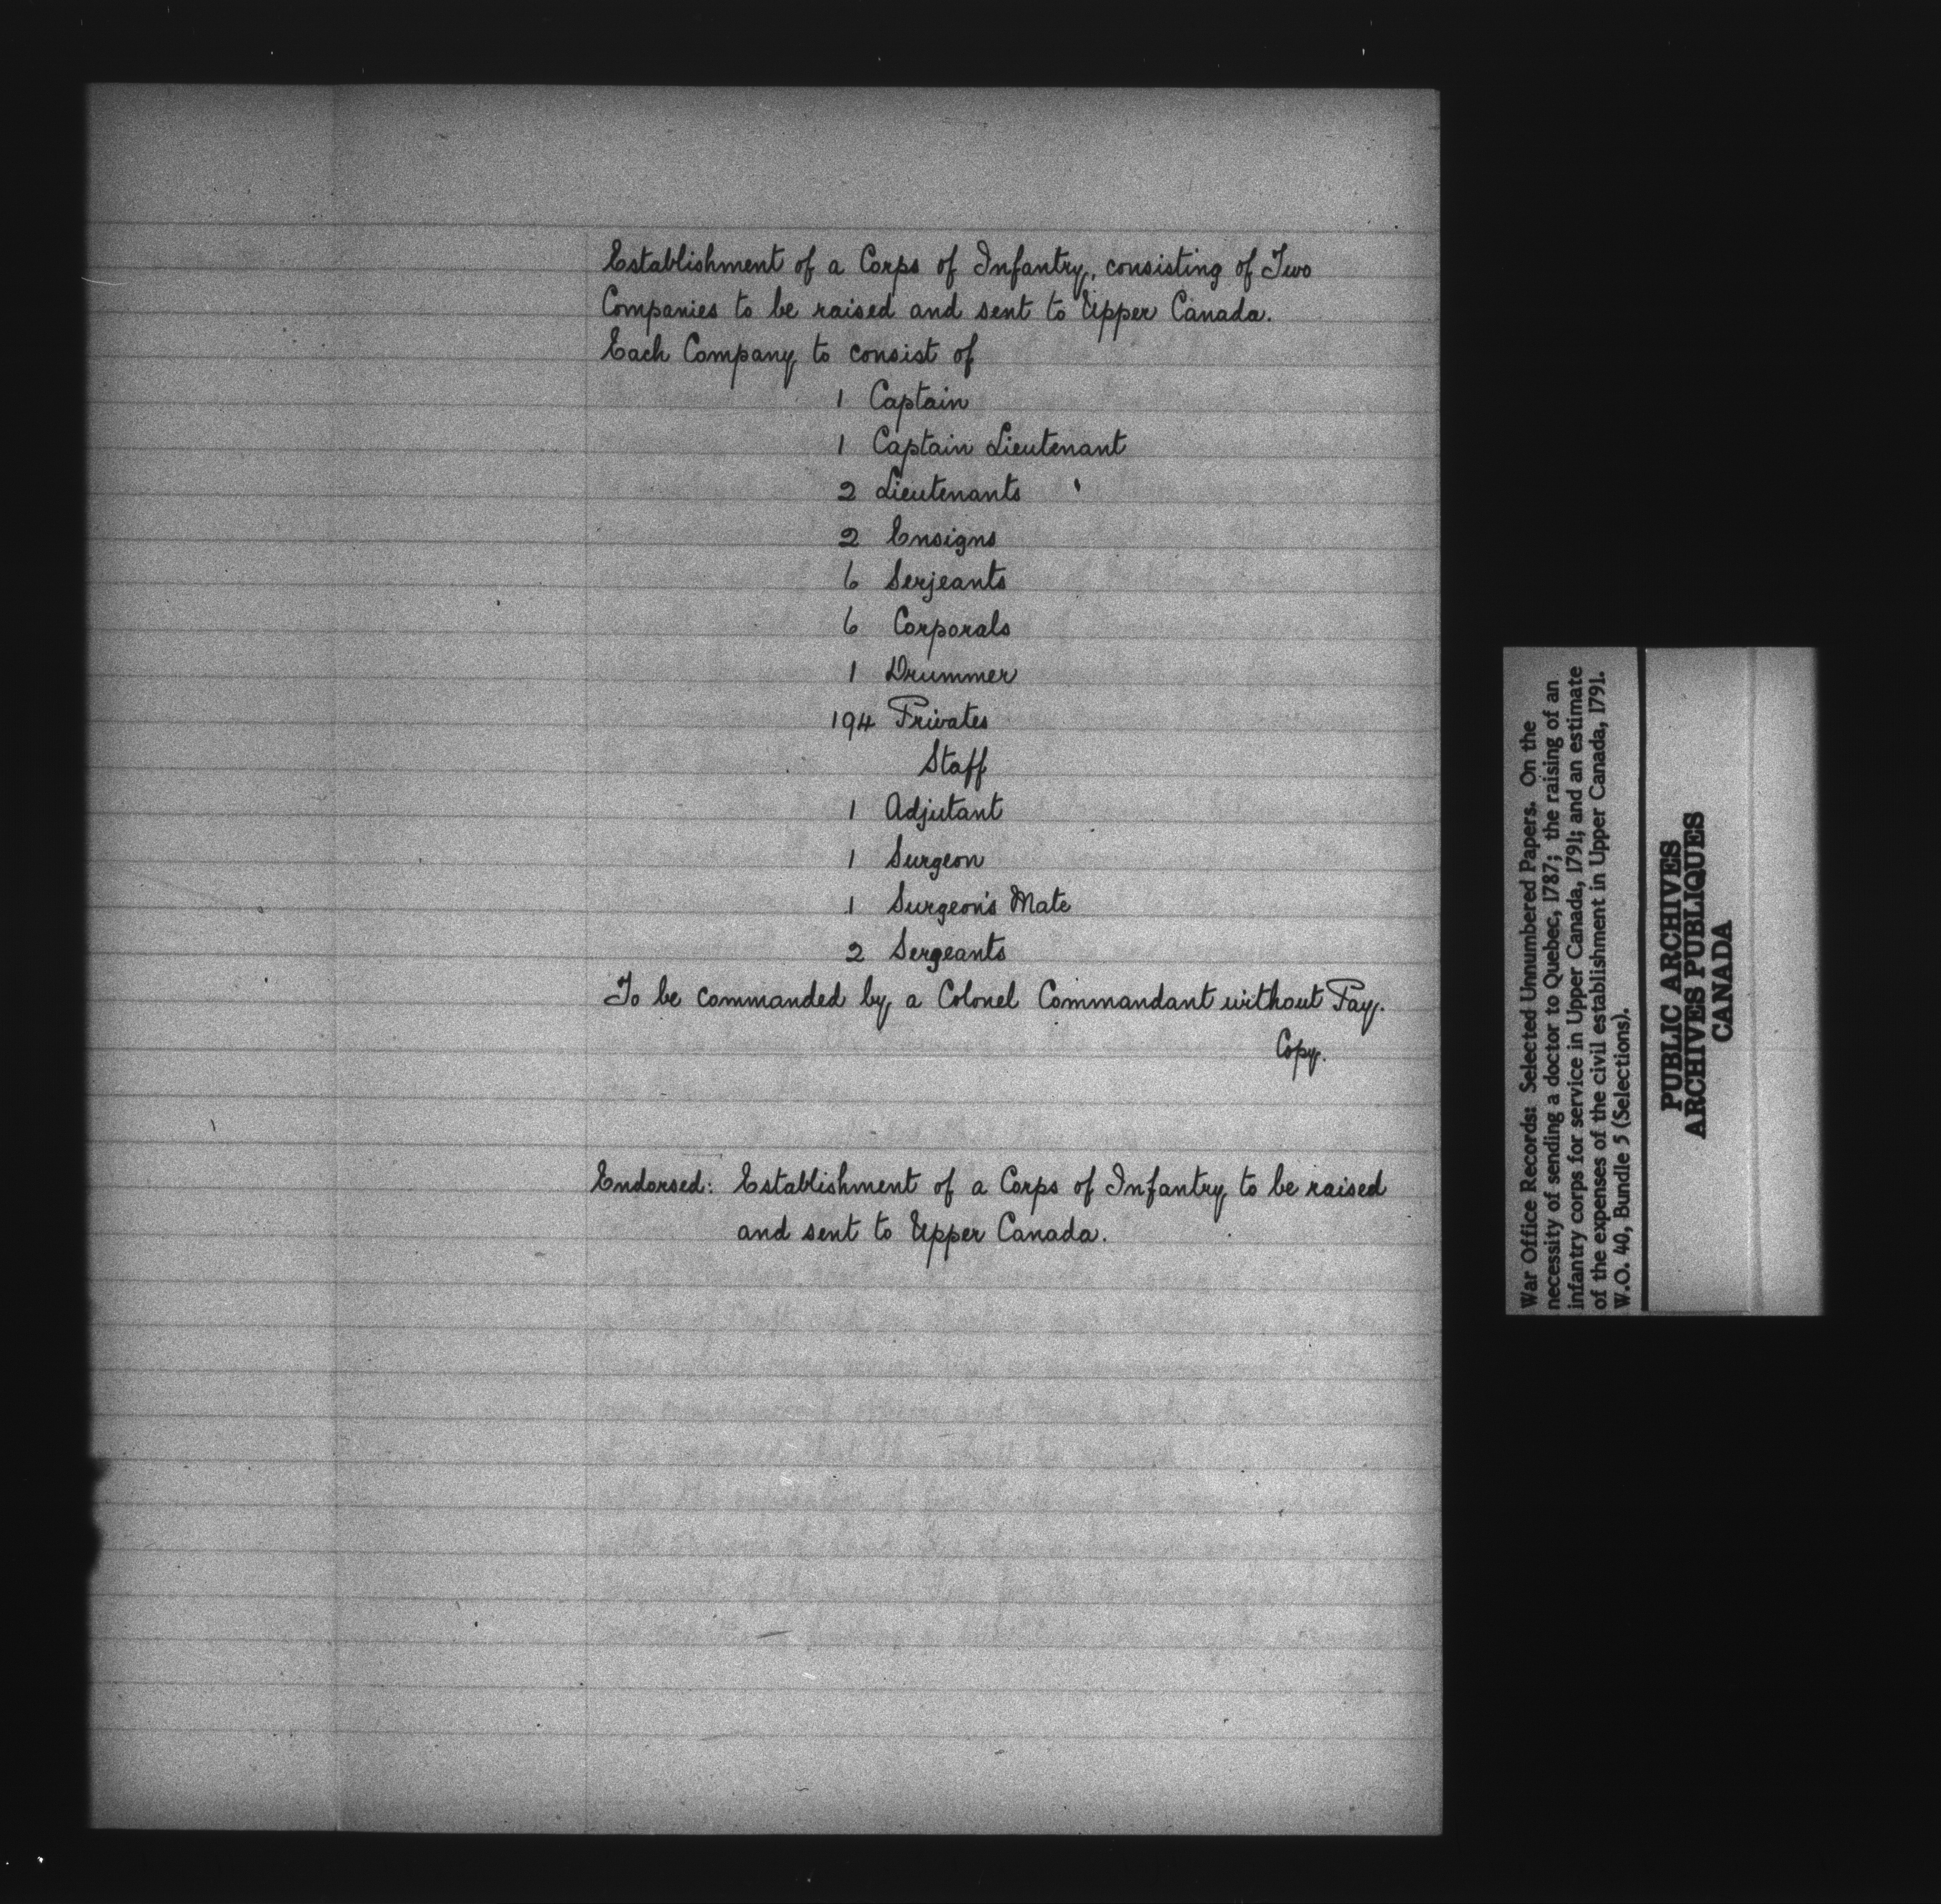 Establishment of a Corps of Infantry, consisting of Two
Companies to be raised and sent to Upper Canada.
Each Company to consist of
1 Captain
1 Captain Lieutenant
2 Lieutenants
2 Ensigns
6 Serjeants
6 Corporals
1 Drummer
194 Privates
Staff
1 Adjutant
1 Surgeon
1 Surgeon's Mate
2 Sergeants
To be commanded by a Colonel Commandant without Pay.
Copy.
Endorsed: Establishment of a Corps of Infantry to be raised
and sent to Upper Canada.
War Office Records: Selected Unnumbered Papers. On the
necessity of sending a doctor to Quebec, 1787; the raising of an
infantry corps for service in Upper Canada, 1791; and an estimate
of the expenses of the civil establishment in Upper Canada, 1791.
W.O. 40, Bundle 5 (Selections).
PUBLIC ARCHIVES
ARCHIVES PUBLIQUES
CANADA